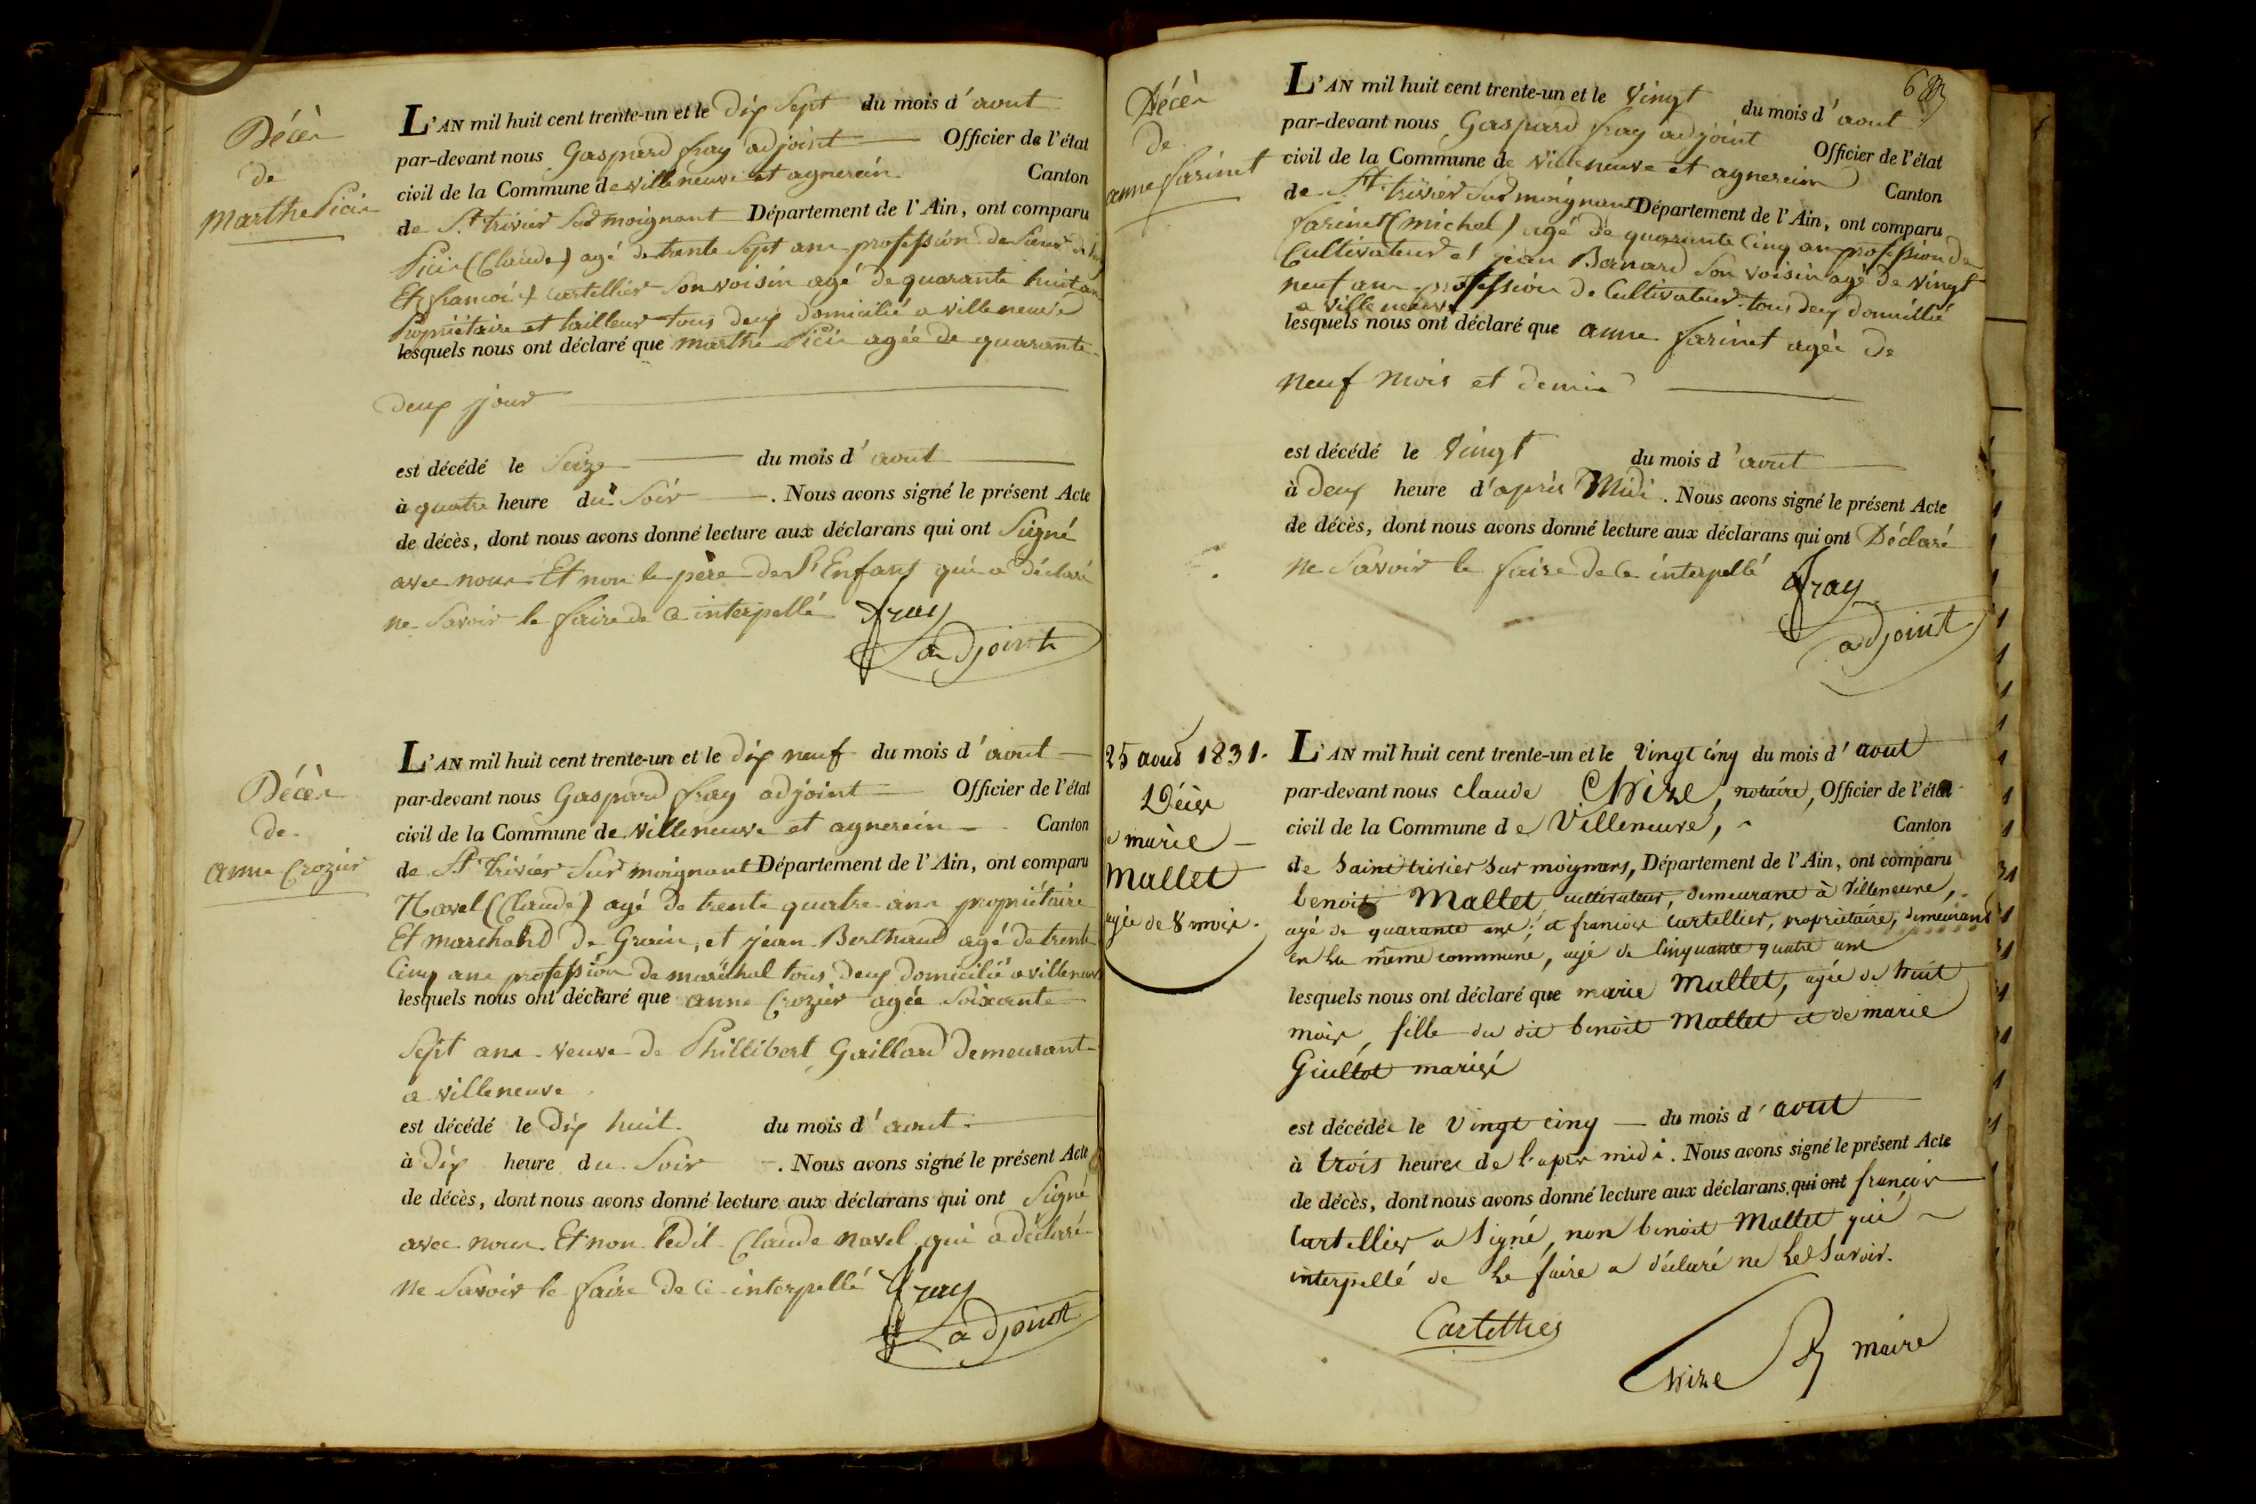 Décès
de
Marthe Picis
L'AN mil huit cent trente-un et le dix Sept du mois d'aout
par-devant nous Gaspard fray adjoint Officier de l'état
civil de la Commune de villeneuve et agnerein Canton
de St trivier Sur moignant Département de l'Ain, ont comparu
(Claude) agé de trente Sept ans profession de
Et françois Cartellier Son voisin agé de quarante huit ans
Propriétaire et tailleur tous deux domicilié a villeneuve
lesquels nous ont déclaré que marthe agée de quarante
deux jour
est décédé le Seize du mois d'aout
à quatre heure du Soir. Nous avons signé le présent Acte
de décès, dont nous avons donné lecture aux déclarans qui ont Signé
avec nous Et non le père de l'Enfant qui a déclaré
ne Savoir le faire de ce interpellé fray
adjoint
Décès
de
anne Crozier
L'AN mil huit cent trente-un et le dix neuf du mois d'aout
par-devant nous Gaspard fray adjoint Officier de l'état
civil de la Commune de villeneuve et agnerein Canton
de St trivier Sur moignant Département de l'Ain, ont comparu
Navel (Claude) agé de trente quatre ans propriétaire
Et marchand de Grain, et jean Berthaud agé de trente
Cinq ans profession de maréchal tous deux domicilié a villeneuve
lesquels nous ont déclaré que anne Crozier agée Soixante
Sept ans veuve de Phillibert Gaillard demeurant
a villeneuve
est décédé le dix huit du mois d'aout
à dix heure du Soir. Nous avons signé le présent Acte
de décès, dont nous avons donné lecture aux déclarans qui ont Signé
avec nous Et non ledit Claude navel qui a déclaré
ne Savoir le faire de ce interpellé fray
adjoint
Décès
de
anne farinet
L'AN mil huit cent trente-un et le vingt du mois d'aout
par-devant nous Gaspard fray adjoint Officier de l'état
civil de la Commune de villeneuve et agnerein Canton
de St trivier Sur moignant Département de l'Ain, ont comparu
farinet (michel) agé de quarante Cinq ans profession de
Cultivateur et jean Bernard Son voisin agé de vingt
neuf ans profession de Cultivateur tous deux domicillié
a villeneuve
lesquels nous ont déclaré que anne farinet agée de
neuf mois et demie
est décédé le vingt du mois d'aout
à deux heure d'après Midi. Nous avons signé le présent Acte
de décès, dont nous avons donné lecture aux déclarans qui ont Déclaré
ne Savoir le faire de ce interpellé fray
adjoint
25 aout 1831.
Décès
marie
Mallet
agée de 8 mois.
L'AN mil huit cent trente-un et le vingt cinq du mois d'aout
par-devant nous claude Chize, notaire, Officier de l'état
civil de la Commune de Villeneuve, Canton
de Saint trivier Sur moignans, Département de l'Ain, ont comparu
benoit Mallet cultivateur, demeurant à villeneuve,
agé de quarante ans; et françois Cartellier, propriétaire, demeurant
en la même commune, agé de Cinquante quatre ans
lesquels nous ont déclaré que marie Mallet, agée de huit
mois, fille du dit benoit Mallet et de marie
mariés
est décédée le vingt cinq du mois d'aout
à trois heures de l'aprés midi. Nous avons signé le présent Acte
de décès, dont nous avons donné lecture aux déclarans, qui ont françois
Cartellier a Signé, non benoit Mallet qui
interpellé de le faire a déclaré ne le Savoir.
Cartellier
Chize maire